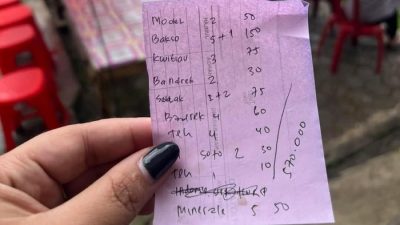 Model 2 50
Bakso 5+1 150
Kwitiau 3 75
Bandrek 2 30
Seblak 3+2 75
Bandrek 4 60
Teh 4 40
Soto 2 30
Teh 1 10
Minerale 5 50
570.000